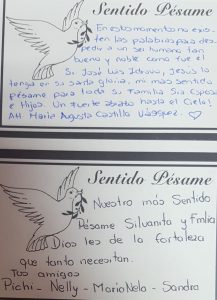 Sentido Pésame
En este momento no exis-
ten las palabras para des-
pedir a un ser humano tan
bueno y noble como fue el
Sr. José Luis Idrovo, Jesús lo
tenga en su santa gloria, mi más sentido
pésame para toda su Familia Sra Esposa
e Hijos. Un fuerte abrazo hasta el Cielo!
Att. Maria Augusta Castillo Vázquez.
Sentido Pésame
Nuestro más Sentido
Pésame Silvanita y Fmlia
Dios les de la fortaleza
que tanto necesitan.
Tus amigas
Pichi - Nelly - Maria Nela - Sandra